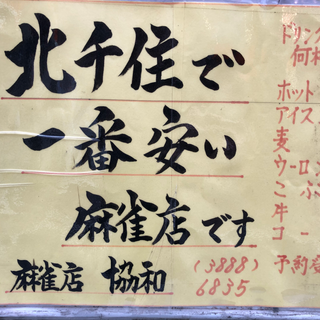 北千住で
一番安い
麻雀店です
麻雀店 協和 (3888) 6835
ドリンク
何杯
ホット
アイス
麦
ウーロン
こぶ
牛
コー
予約